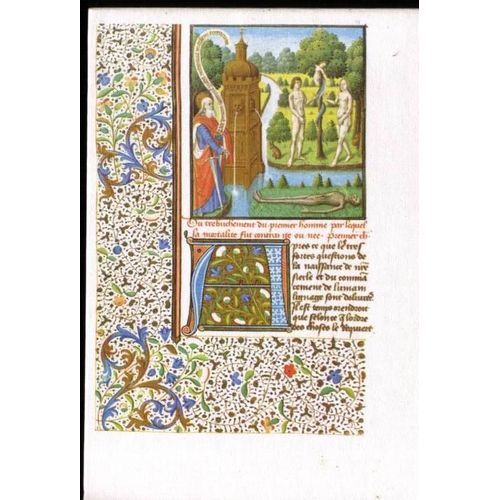 Du trebuchement du premier homme par lequel
la mortalite fut contraite ou nee. Premier ch
A
pres ce que les tres
fortes questions de
la naissance de nre
siecle et du comma
cement de lumain
lignage sont delivrees
Il est temps orendroit
que selonc lordre
des choses le requiert